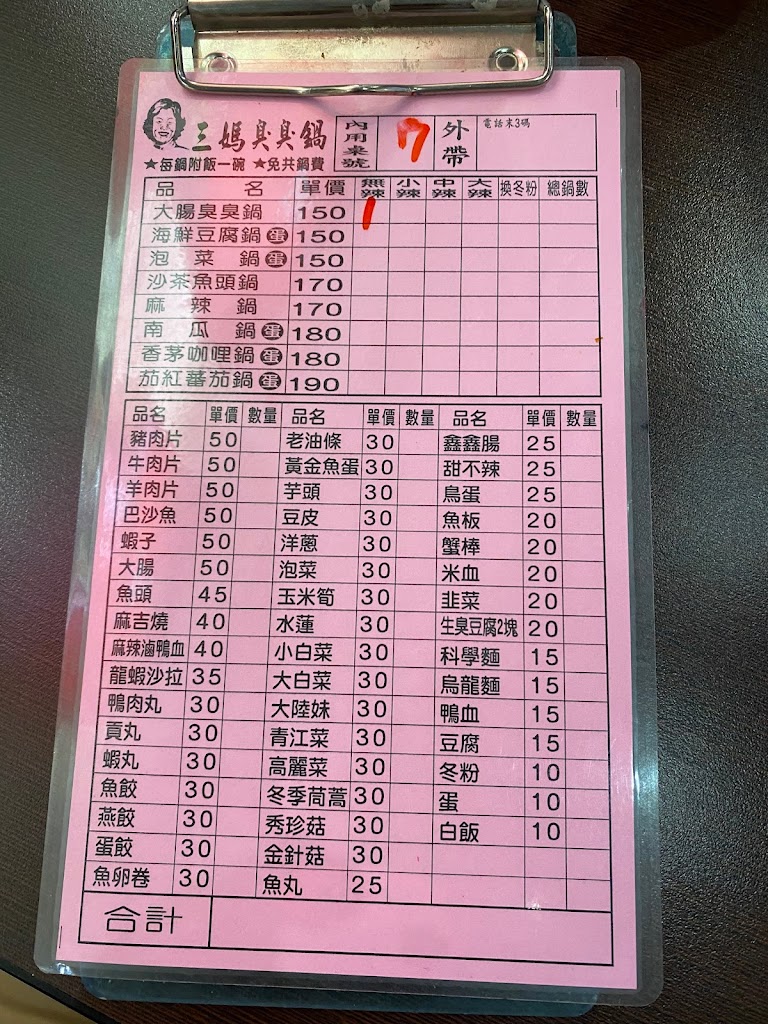 三媽臭臭鍋 內用桌號 7 外帶 電話末3碼
★每鍋附飯一碗 ★免共鍋費
品名 單價 無辣 小辣 中辣 大辣 換冬粉 總鍋數
大腸臭臭鍋 150 1
海鮮豆腐鍋 蛋 150
泡菜鍋 蛋 150
沙茶魚頭鍋 170
麻辣鍋 170
南瓜鍋 蛋 180
香茅咖哩鍋 蛋 180
茄紅蕃茄鍋 蛋 190
品名 單價 數量 品名 單價 數量 品名 單價 數量
豬肉片 50 老油條 30 鑫鑫腸 25
牛肉片 50 黃金魚蛋 30 甜不辣 25
羊肉片 50 芋頭 30 鳥蛋 25
巴沙魚 50 豆皮 30 魚板 20
蝦子 50 洋蔥 30 蟹棒 20
大腸 50 泡菜 30 米血 20
魚頭 45 玉米筍 30 韭菜 20
麻吉燒 40 水蓮 30 生臭豆腐2塊 20
麻辣滷鴨血 40 小白菜 30 科學麵 15
龍蝦沙拉 35 大白菜 30 烏龍麵 15
鴨肉丸 30 大陸妹 30 鴨血 15
貢丸 30 青江菜 30 豆腐 15
蝦丸 30 高麗菜 30 冬粉 10
魚餃 30 冬季茼蒿 30 蛋 10
燕餃 30 秀珍菇 30 白飯 10
蛋餃 30 金針菇 30
魚卵卷 30 魚丸 25
合計